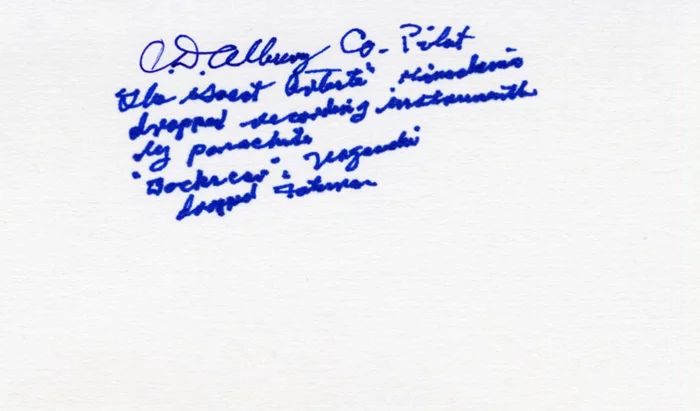 C.D. Albury Co-Pilot
"The Great Artiste" Hiroshima
dropped recording instruments
by parachute
"Bockscar": Nagasaki
dropped Fatman